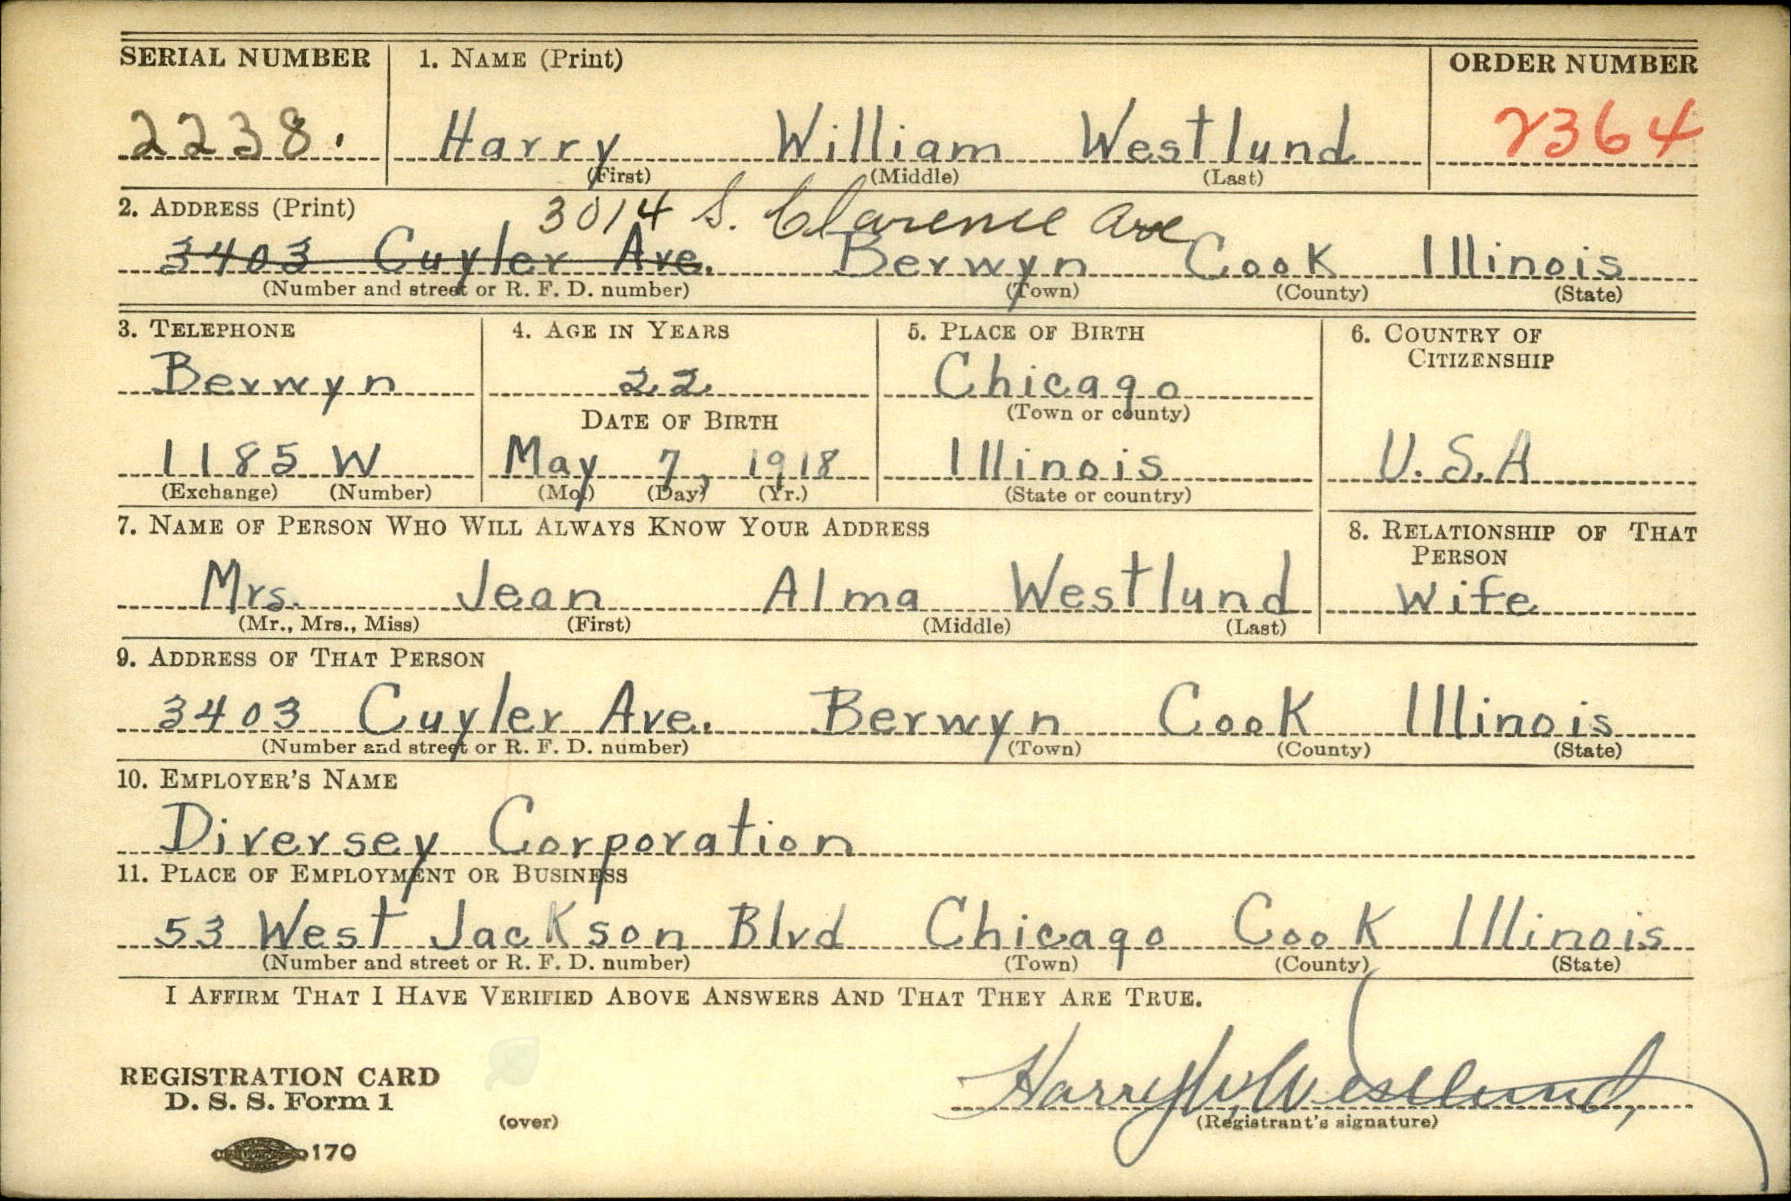 SERIAL NUMBER 1. NAME (Print) ORDER NUMBER
2238. Harry William Westlund 2364
(First) (Middle) (Last)
2. ADDRESS (Print) 3014 S. Clarence Ave
3403 Cuyler Ave. Berwyn Cook Illinois
(Number and street or R. F. D. number) (Town) (County) (State)
3. TELEPHONE 4. AGE IN YEARS 5. PLACE OF BIRTH 6. COUNTRY OF
CITIZENSHIP
Berwyn 22 Chicago
DATE OF BIRTH (Town or county)
1185 W May 7, 1918 Illinois U.S.A
(Exchange) (Number) (Mo.) (Day) (Yr.) (State or country)
7. NAME OF PERSON WHO WILL ALWAYS KNOW YOUR ADDRESS 8. RELATIONSHIP OF THAT
PERSON
Mrs. Jean Alma Westlund Wife
(Mr., Mrs., Miss) (First) (Middle) (Last)
9. ADDRESS OF THAT PERSON
3403 Cuyler Ave. Berwyn Cook Illinois
(Number and street or R. F. D. number) (Town) (County) (State)
10. EMPLOYER'S NAME
Diversey Corporation
11. PLACE OF EMPLOYMENT OR BUSINESS
53 West Jackson Blvd Chicago Cook Illinois
(Number and street or R. F. D. number) (Town) (County) (State)
I AFFIRM THAT I HAVE VERIFIED ABOVE ANSWERS AND THAT THEY ARE TRUE.
REGISTRATION CARD
D. S. S. Form 1
Harry W. Westlund
(over) (Registrant's signature)
170